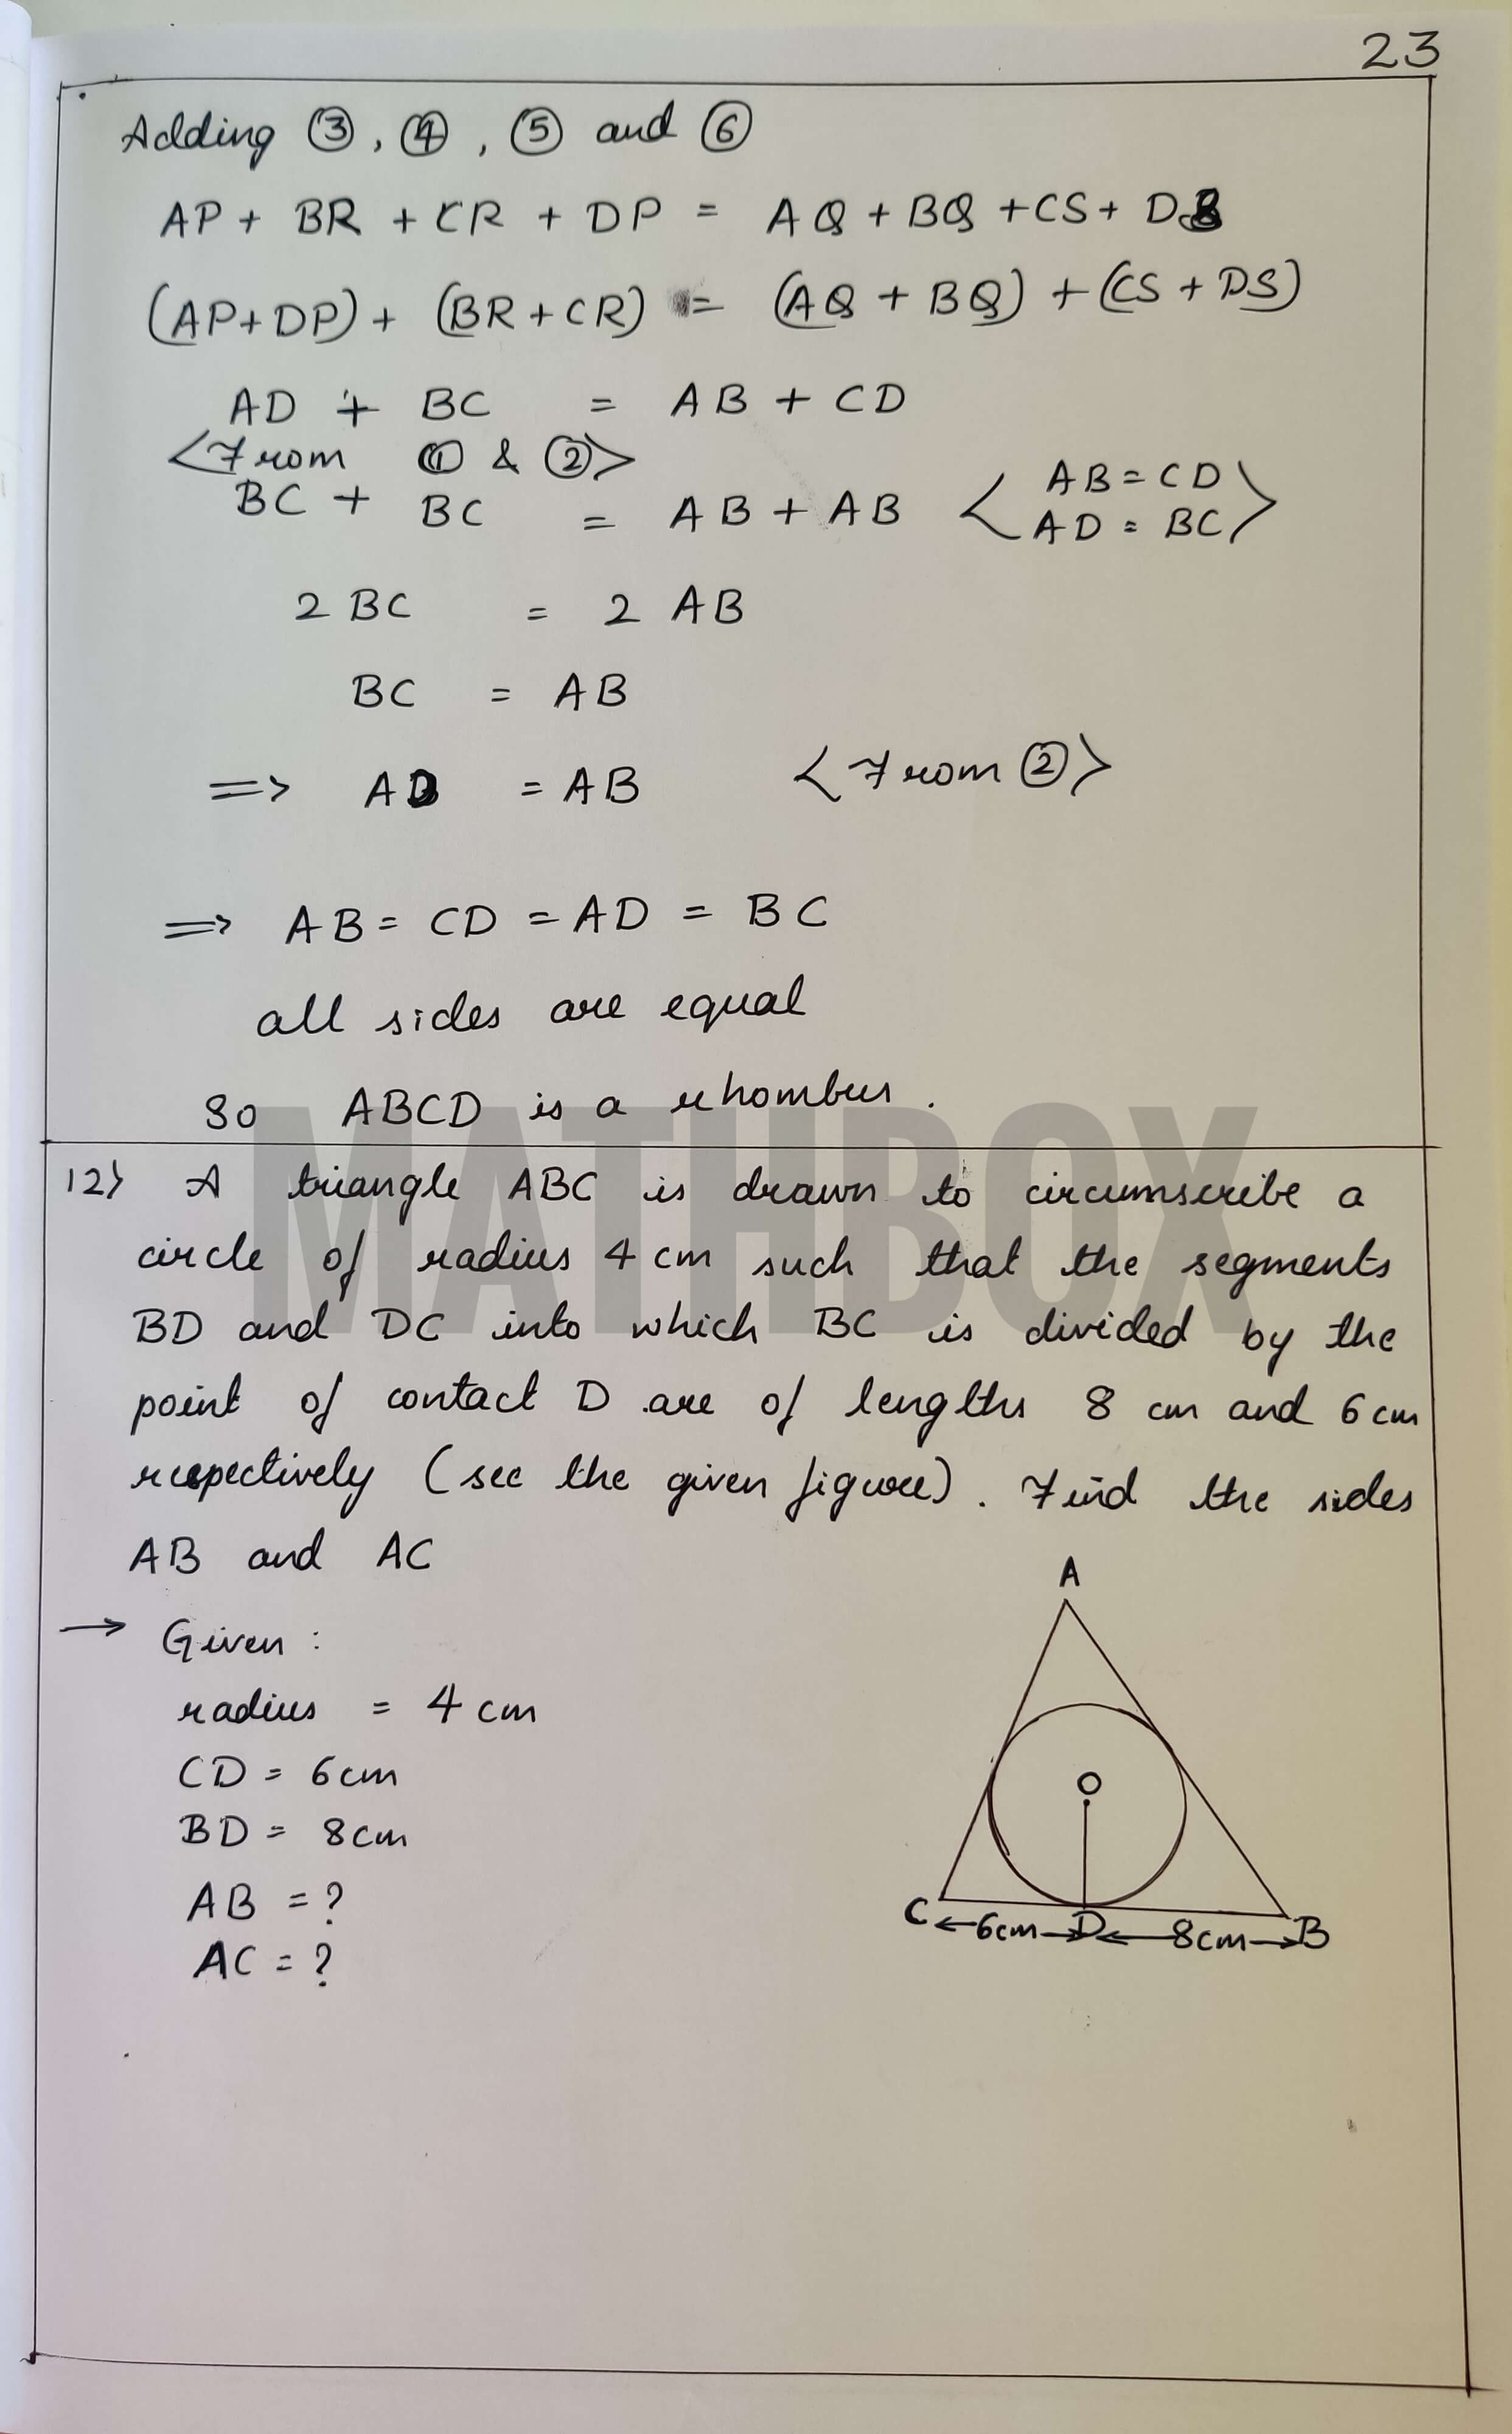 23
Adding ③, ④, ⑤ and ⑥
AP + BR + CR + DP = AQ + BQ + CS + DS
(AP+DP) + (BR+CR) = (AQ + BQ) + (CS + DS)
AD + BC = AB + CD
<From ① & ②>
BC + BC = AB + AB <AB = CD
AD = BC>
2 BC = 2 AB
BC = AB
=> AD = AB <From ②>
=> AB = CD = AD = BC
all sides are equal
So ABCD is a rhombus.
MATHBOX
12> A triangle ABC is drawn to circumscribe a
circle of radius 4 cm such that the segments
BD and DC into which BC is divided by the
point of contact D are of lengths 8 cm and 6 cm
respectively (see the given figure). Find the sides
AB and AC
→ Given :
radius = 4 cm
CD = 6 cm
BD = 8 cm
AB = ?
AC = ?
A
O
C ←6cm→ D ←8cm→ B